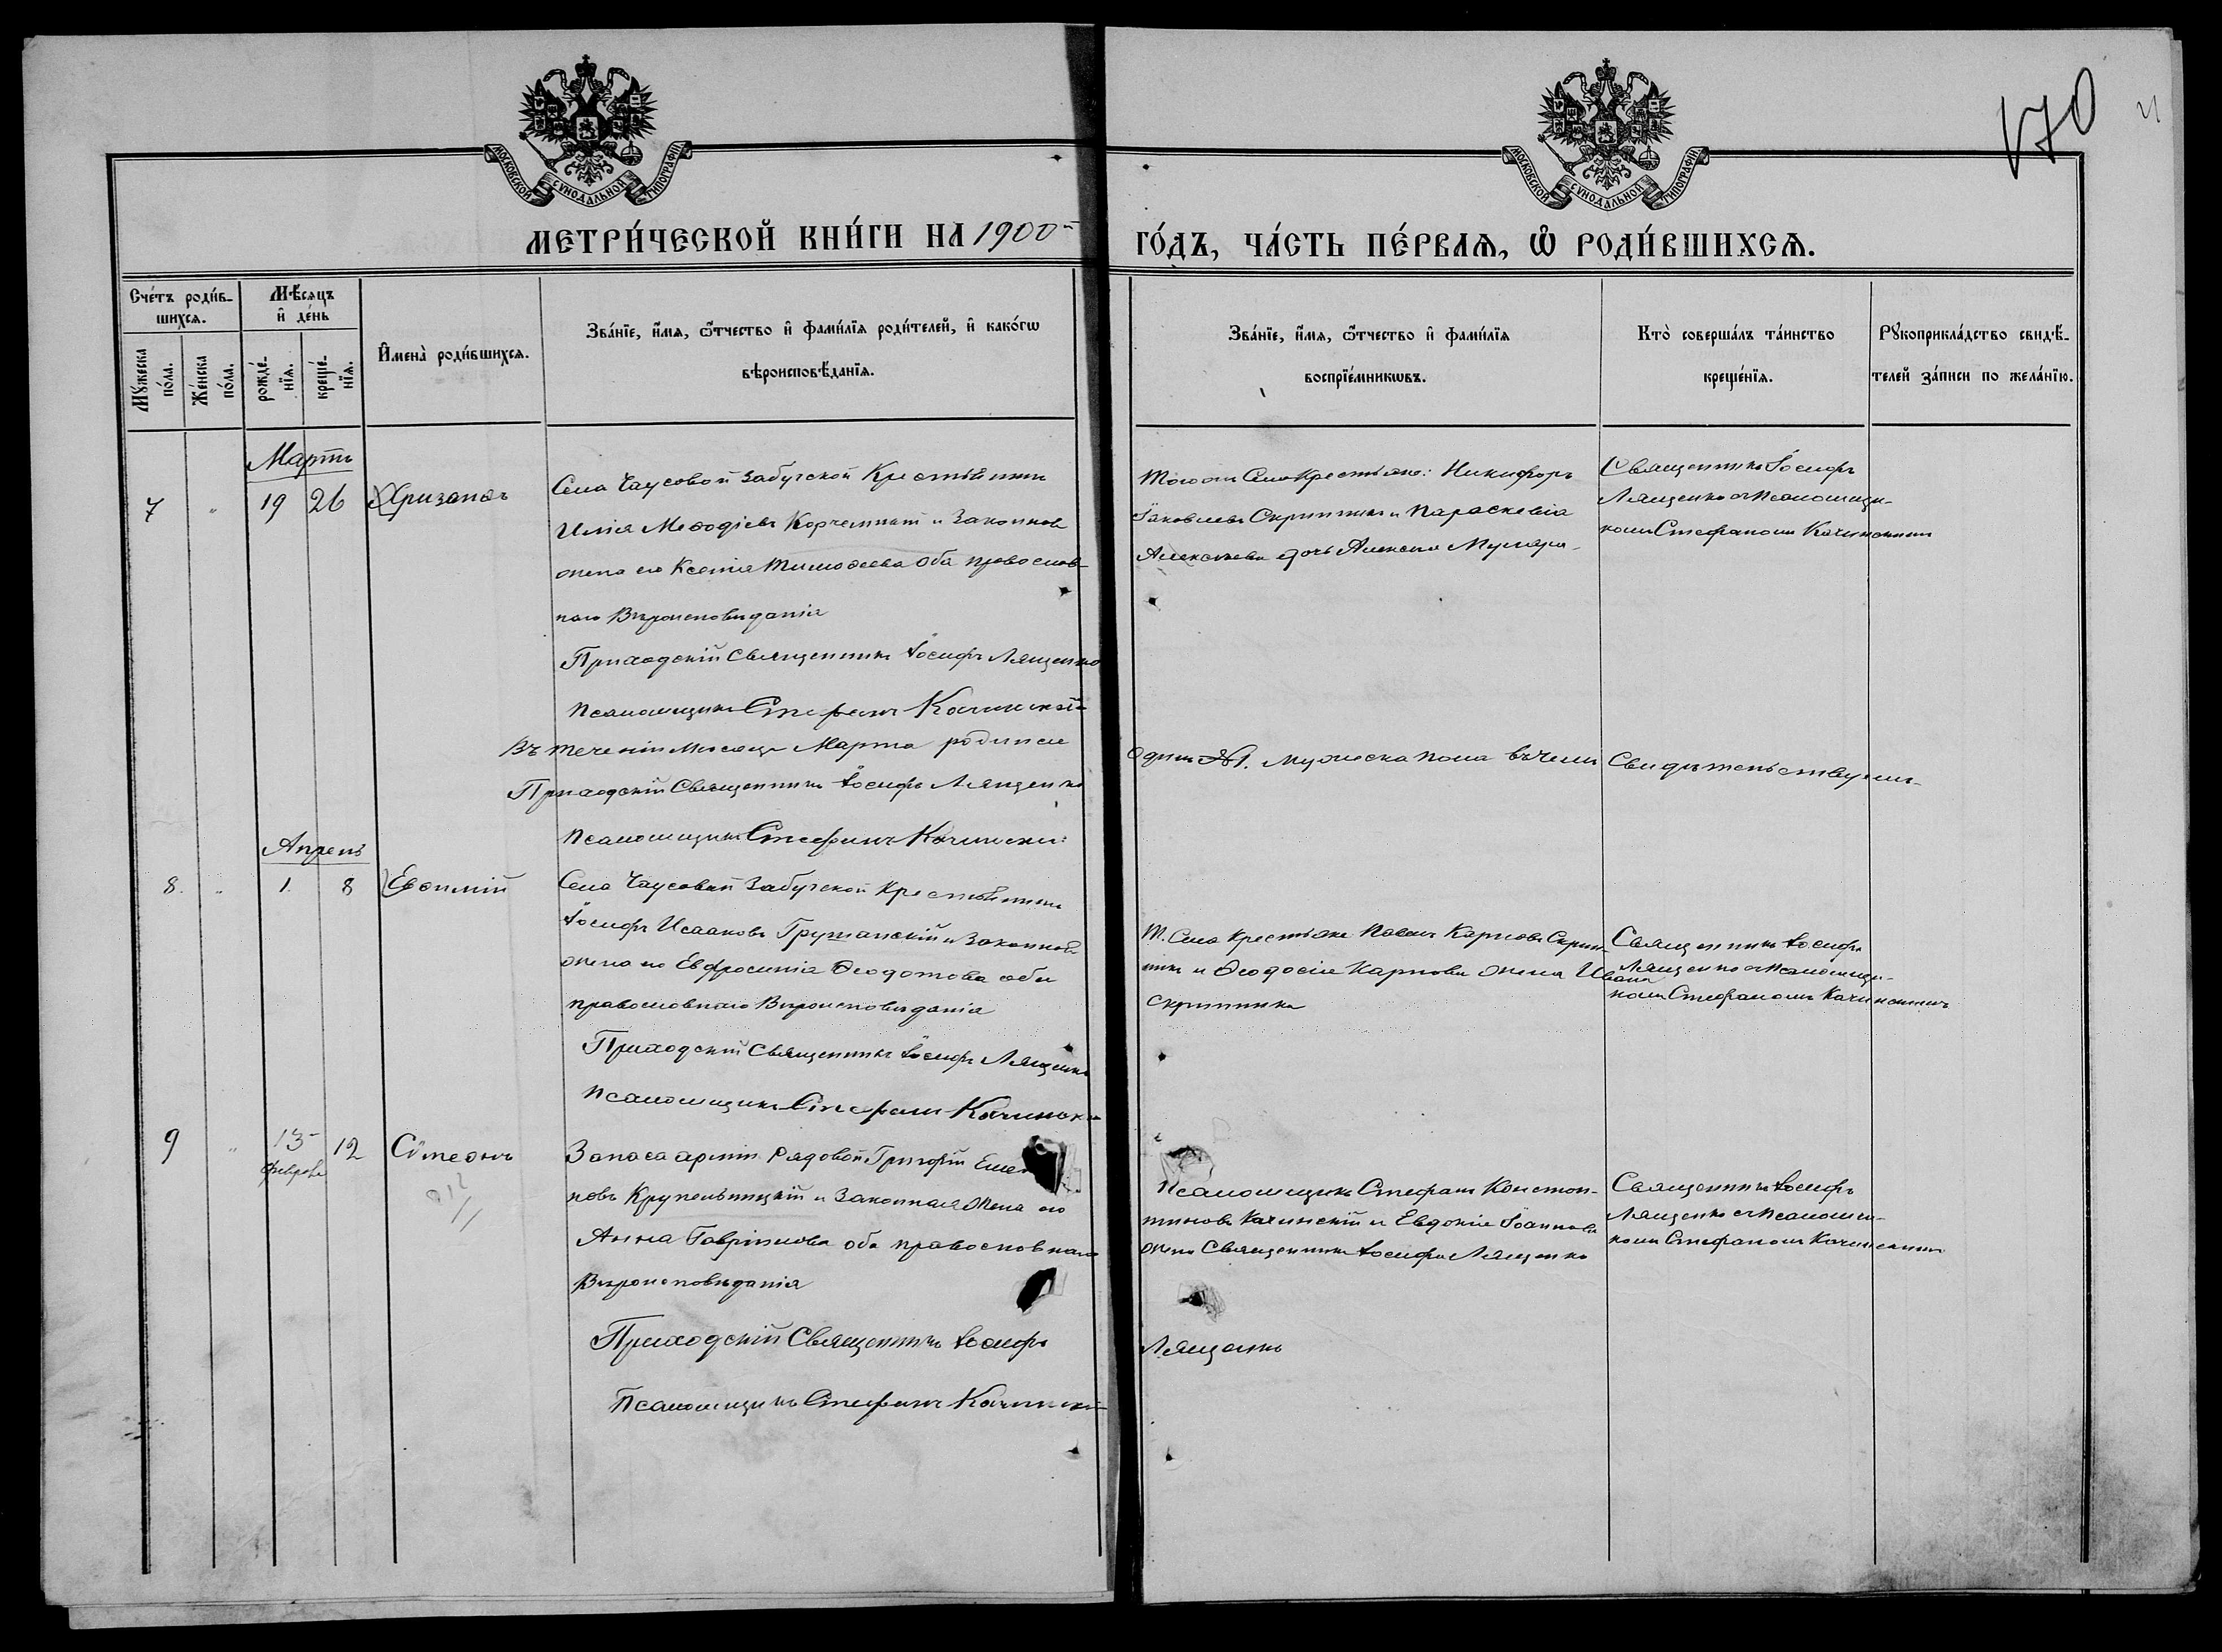 170
МОСКОВСКОЙ СѴНОДАЛЬНОЙ ТИПОГРАФІИ
МОСКОВСКОЙ СѴНОДАЛЬНОЙ ТИПОГРАФІИ
МЕТРИ́ЧЕСКОЙ КНИ́ГИ НА 1900
ГО́ДЪ, ЧА́СТЬ ПЕ́РВАѦ, Ѡ҆ РОДИ́ВШИХСѦ.
Сче́тъ роди́в-
шихсѧ.
Мꙋ́жеска
по́ла.
Же́нска
по́ла.
Мѣ́сѧцъ
и҆ де́нь
рожде́-
нїѧ.
креще́-
нїѧ.
И҆мена̀ роди́вшихсѧ.
Зва́нїе, и҆́мѧ, ѻ҆́тчество и҆ фами́лїѧ роди́телей, и҆ како́гѡ
вѣроисповѣ́данїѧ.
Зва́нїе, и҆́мѧ, ѻ҆́тчество и҆ фами́лїѧ
воспрїе́мникѡвъ.
Кто̀ соверша́лъ та́инство
креще́нїѧ.
Рꙋкоприкла́дство свидѣ́-
телей за́писи по жела́нїю.
Мартъ
7 " 19 26 Хризанѳъ
Села Чаусовой Забугской Крестьянинъ
Илія Меѳодіевъ Корчемный и Законная
жена его Ксенія Тимоѳеева оба православ-
наго Вѣроисповѣданія
Приходскій Священникъ Іосифъ Лященко
Псаломщикъ Стефанъ Качинскій
Того же Села Крестьяне: Никифоръ
Іаковлевъ Скрипникъ и Параскевія
Алексѣева дочь Алексѣя Муляра
Священникъ Іосифъ
Лященко съ Псаломщи-
комъ Стефаномъ Качинскимъ
Въ теченіи Мѣсяца Марта родился
Одинъ №1. мужеска пола въ чемъ
Свидѣтельствуемъ
Приходскій Священникъ Іосифъ Лященко
Псаломщикъ Стефанъ Качинскій
Апрель
8. " 1 8 Евѳимій
Села Чаусовой Забугской Крестьянинъ
Іосифъ Исааковъ Гружанскій и Законная
жена его Евфросинія Ѳеодотова оба
православнаго Вѣроисповѣданія
Приходскій Священникъ Іосифъ Лященко
Псаломщикъ Стефанъ Качинскій
Т. Села Крестьяне Павелъ Карповъ Скрип-
никъ и Ѳеодосія Карпова жена Ивана
Скрипника
Священникъ Іосифъ
Лященко съ Псаломщи-
комъ Стефаномъ Качинскимъ
9 " 13 12 Сѵмеонъ
февраля
Запаса арміи Рядовой Григорій
новъ Крупельницкій и Законная жена его
Анна Гавріилова оба православнаго
Вѣроисповѣданія
Приходскій Священникъ Іосифъ
Лященко
Псаломщикъ Стефанъ Качинскій
Псаломщикъ Стефанъ Констан-
тиновъ Качинскій и Евдокія Іоаннова
жена Священника Іосифа Лященко
Священникъ Іосифъ
Лященко съ Псаломщи-
комъ Стефаномъ Качинскимъ